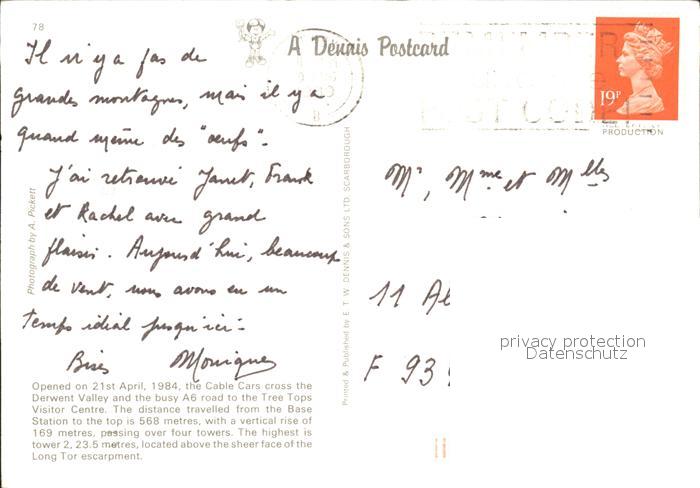 78
A Dennis Postcard
19P
PRODUCTION
Il n'y a pas de
grandes montagnes, mais il y a
quand même des "oeufs".
J'ai retrouvé Janet, Frank
et Rachel avec grand
plaisir. Aujourd'hui, beaucoup
de vent, nous avons eu un
temps idéal jusqu'ici.
Bises Monique
Photograph by A. Pickett
Printed & Published by E T W DENNIS & SONS LTD. SCARBOROUGH
Mr, Mme et Mlles
11 A
F 93
privacy protection
Datenschutz
Opened on 21st April, 1984, the Cable Cars cross the
Derwent Valley and the busy A6 road to the Tree Tops
Visitor Centre. The distance travelled from the Base
Station to the top is 568 metres, with a vertical rise of
169 metres, passing over four towers. The highest is
tower 2, 23.5 metres, located above the sheer face of the
Long Tor escarpment.